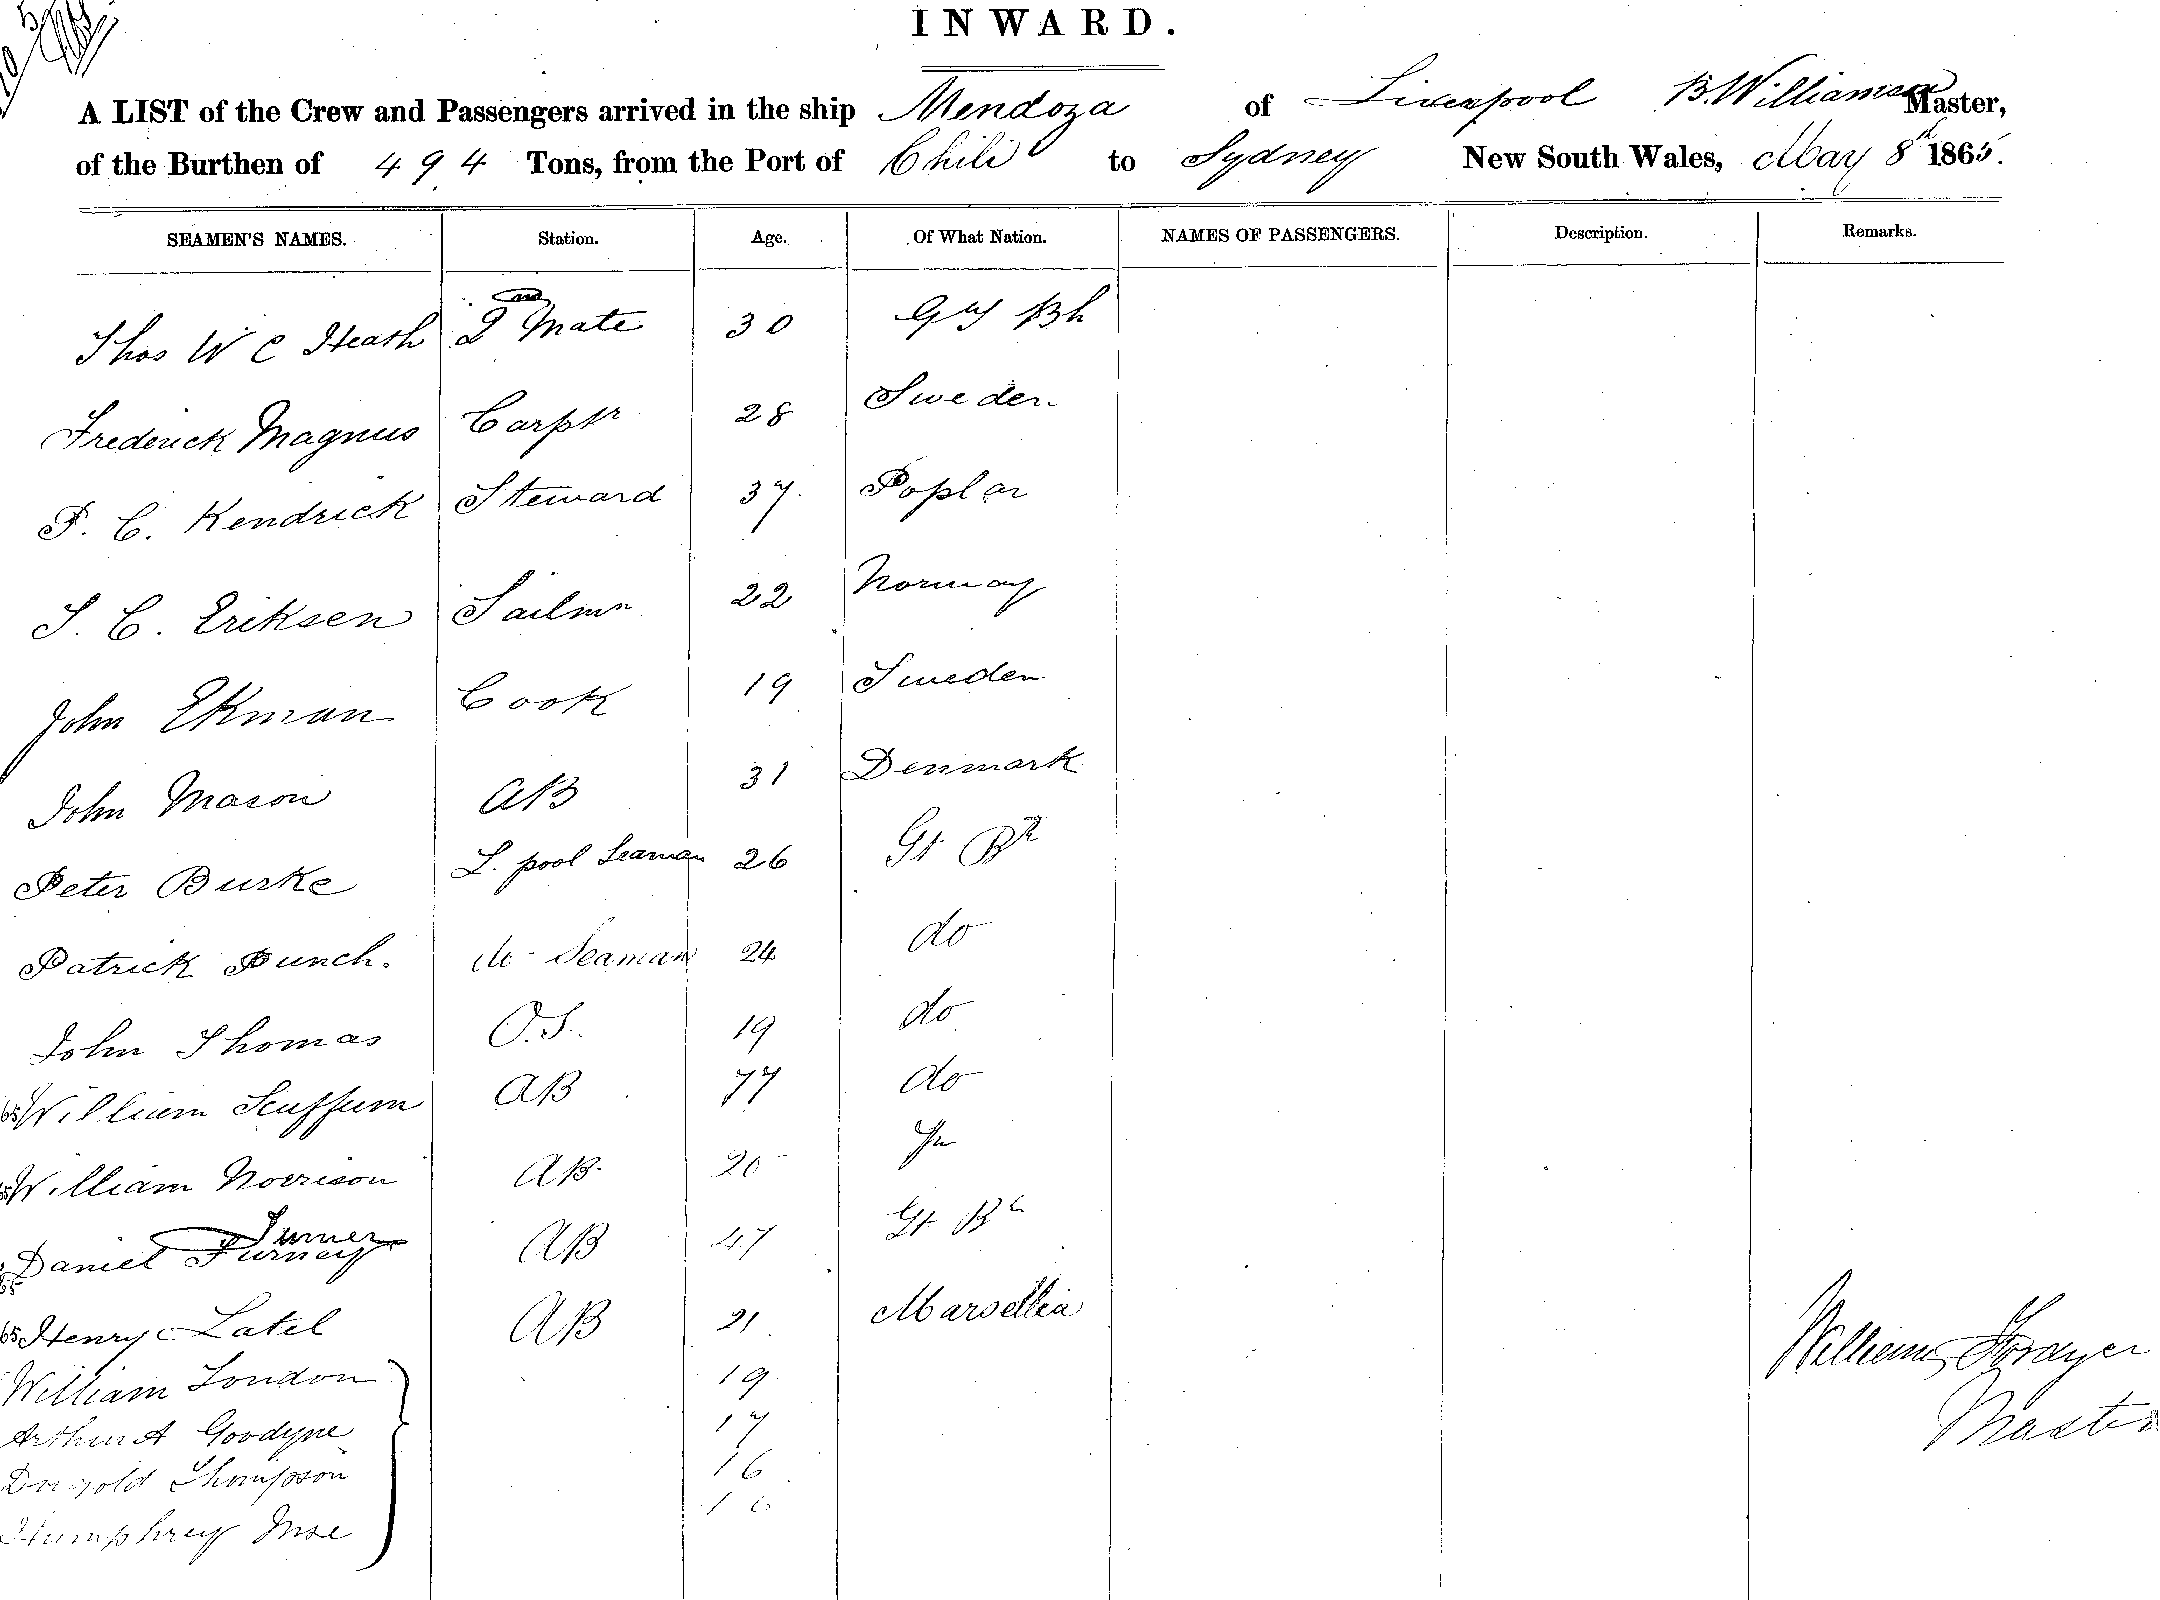 INWARD.
A LIST of the Crew and Passengers arrived in the ship Mendoza of Liverpool B. Williamson Master,
of the Burthen of 494 Tons, from the Port of Chili to Sydney New South Wales, May 8th 1865.
SEAMEN'S NAMES. Station. Age. Of What Nation. NAMES OF PASSENGERS. Description. Remarks.
Thos W C Heath 2nd Mate 30
Frederick Magnus Carptr 28 Sweden
P. C. Kendrick Steward 37 Poplar
J. C. Eriksen Sailmr 22 Norway
John Ekman Cook 19 Sweden
John Mason AB 31 Denmark
Peter Burke L. pool Seaman 26 Gt Br
Patrick Punch. do Seaman 24 do
John Thomas O.S. 19 do
William Scuffum AB 77 do
William Morrison AB 20
Turner
Daniel Furney AB 47 Gt Br
Henry Latel AB 21 Marsellia
William London 19
Arthur A Goodyne 17
Thompson 16
Humphrey 16
William
Master